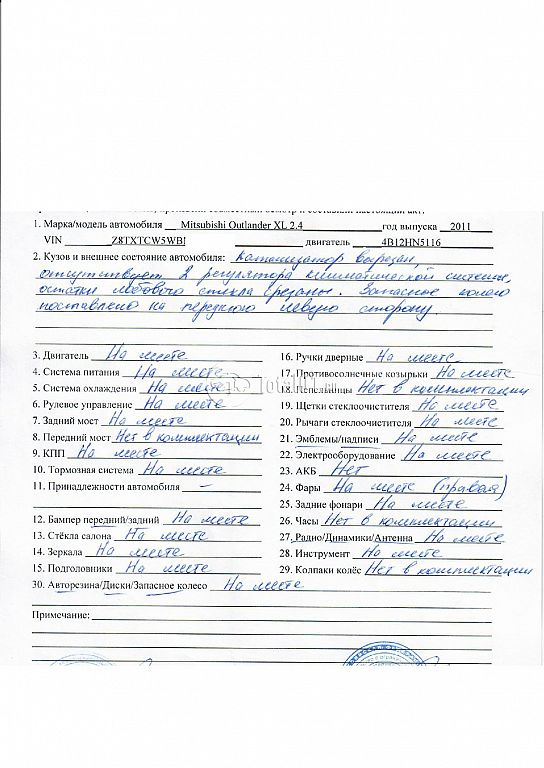 1. Марка/модель автомобиля Mitsubishi Outlander XL 2.4 год выпуска 2011
VIN Z8TXTCW5WBI двигатель 4B12HN5116
2. Кузов и внешнее состояние автомобиля: Катализатор вырезан,
отсутствует 2 регулятора климатической системы,
остатки лобового стекла срезаны. Запасное колесо
поставлено на переднюю левую сторону.
3. Двигатель На месте
4. Система питания На месте
5. Система охлаждения На месте
6. Рулевое управление На месте
7. Задний мост На месте
8. Передний мост Нет в комплектации
9. КПП На месте
10. Тормозная система На месте
11. Принадлежности автомобиля –
12. Бампер передний/задний На месте
13. Стёкла салона На месте
14. Зеркала На месте
15. Подголовники На месте
16. Ручки дверные На месте
17. Противосолнечные козырьки На месте
18. Пепельницы Нет в комплектации
19. Щетки стеклоочистителя На месте
20. Рычаги стеклоочистителя На месте
21. Эмблемы/надписи На месте
22. Электрооборудование На месте
23. АКБ Нет
24. Фары На месте (правая)
25. Задние фонари На месте
26. Часы Нет в комплектации
27. Радио/Динамики/Антенна На месте
28. Инструмент На месте
29. Колпаки колёс Нет в комплектации
30. Авторезина/Диски/Запасное колесо На месте
Примечание: